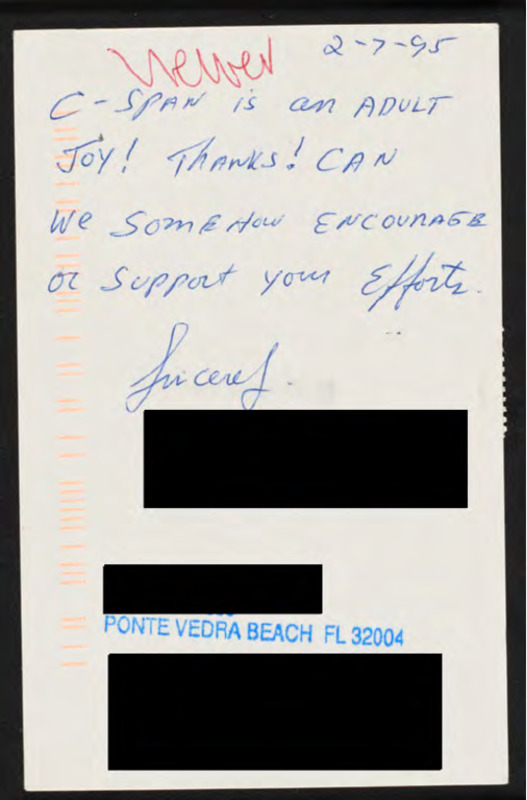 Viewer
2-7-95
C-SPAN is an ADULT
JOY! THANKS! CAN
We SOMEHOW ENCOURAGE
or Support your Efforts.
Sincerely.
PONTE VEDRA BEACH FL 32004